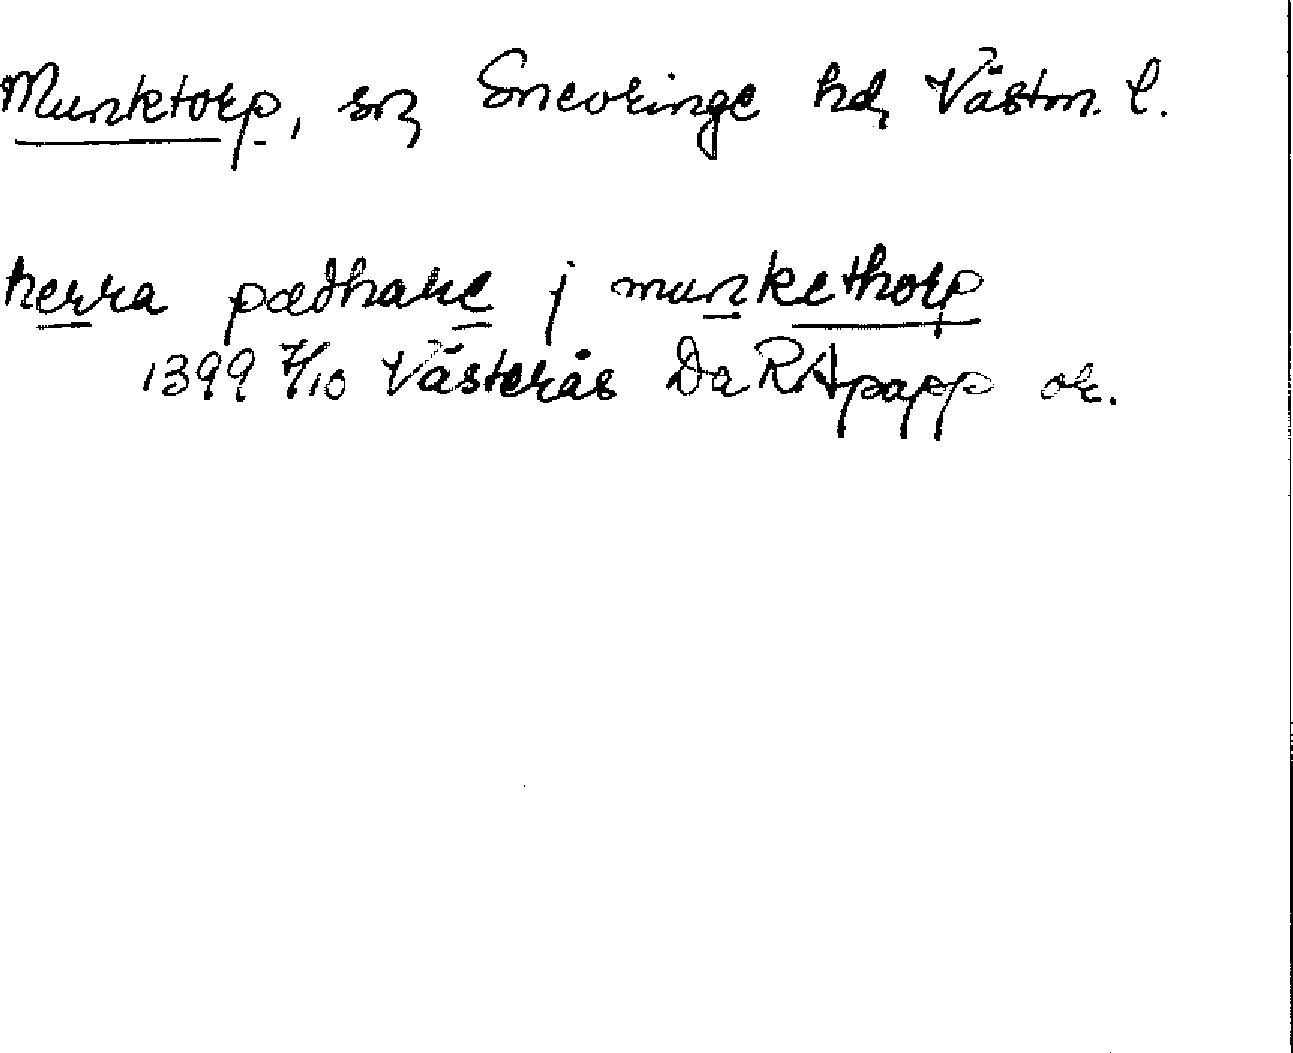 Munktorp, sn, Snevringe hd, Västm. l.
herra pædhare j munkethorp
1399 7/10 Västerås Da RApapp or.